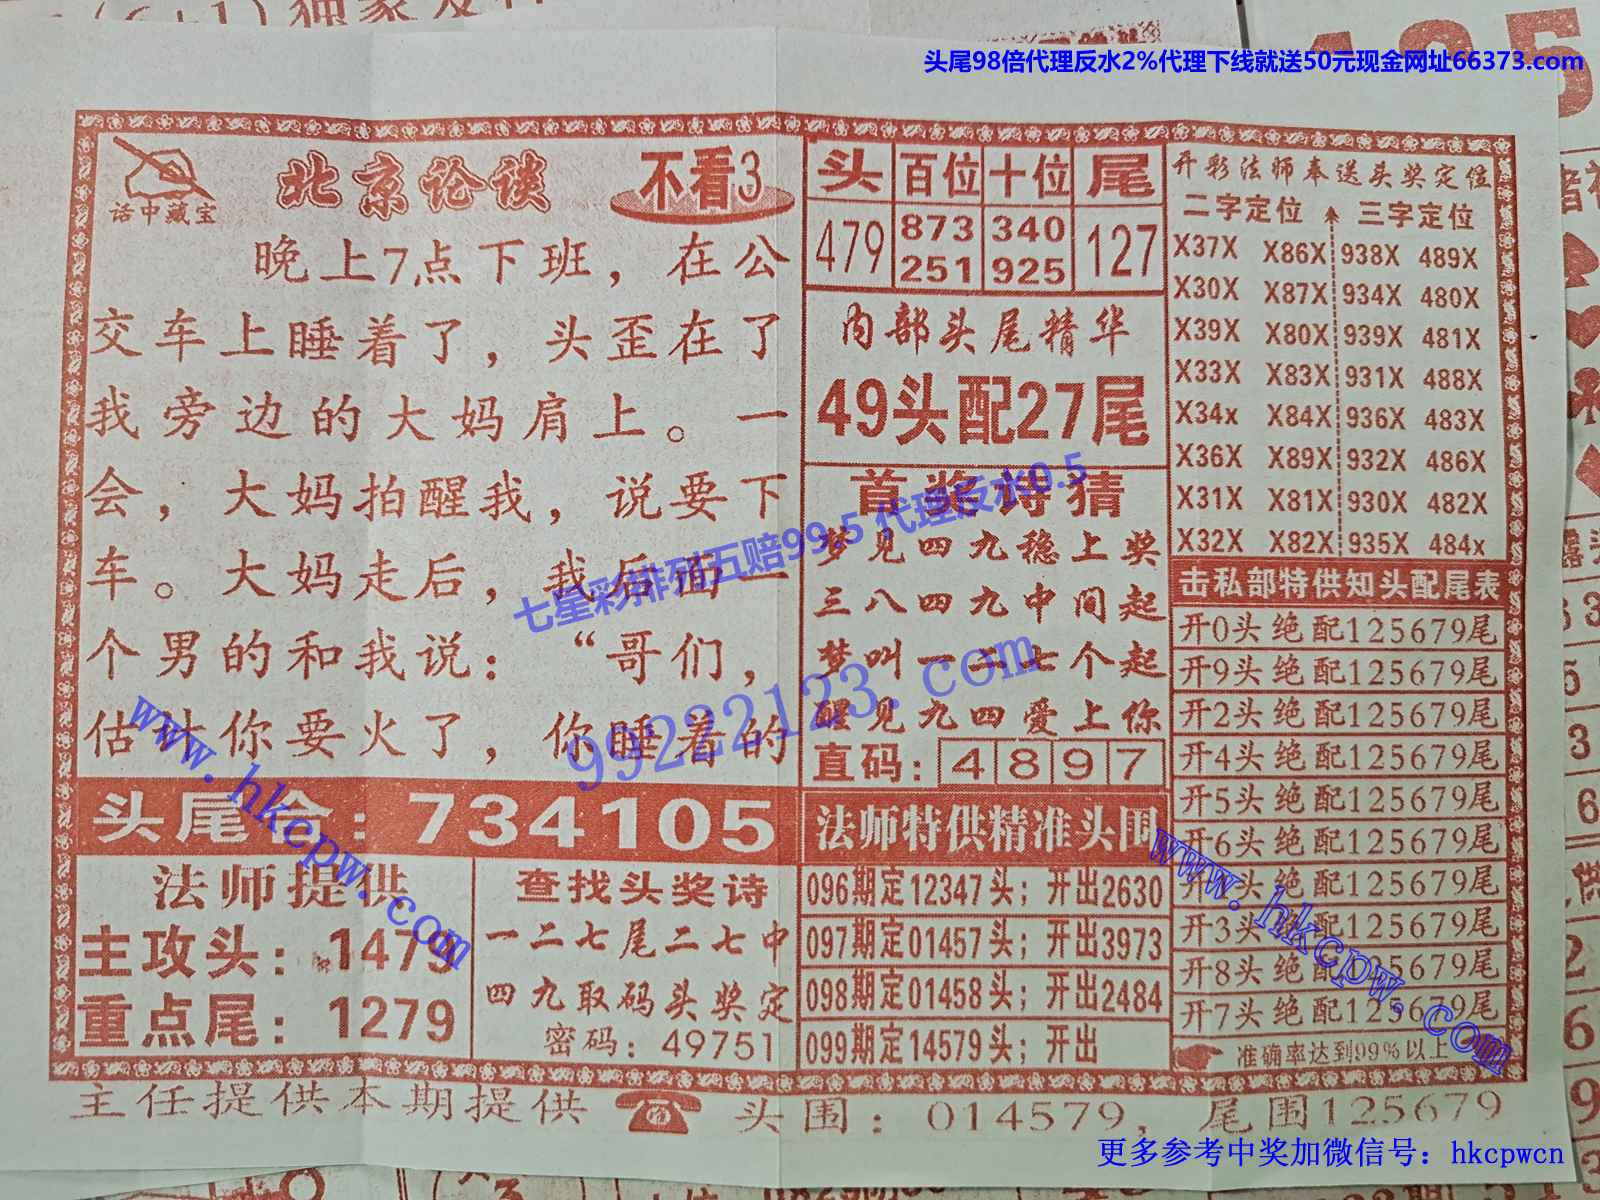 头尾98倍代理反水2%代理下线就送50元现金网址66373.com
话中藏宝
北京论谈
不看3
晚上7点下班，在公
交车上睡着了，头歪在了
我旁边的大妈肩上。一
会，大妈拍醒我，说要下
车。大妈走后，我后面一
个男的和我说：“哥们，
估计你要火了，你睡着的
头尾合：734105
法师提供
主攻头：1479
重点尾：1279
查找头奖诗
一二七尾二七中
四九取码头奖定
密码：49751
头 百位 十位 尾
479 873 340 127
251 925
内部头尾精华
49头配27尾
首奖诗猜
梦见四九稳上奖
三八四九中间起
梦叫一二七个起
醒见九四爱上你
直码：4897
法师特供精准头围
096期定12347头；开出2630
097期定01457头；开出3973
098期定01458头；开出2484
099期定14579头；开出
开彩法师奉送头奖定位
二字定位 三字定位
X37X X86X 938X 489X
X30X X87X 934X 480X
X39X X80X 939X 481X
X33X X83X 931X 488X
X34x X84X 936X 483X
X36X X89X 932X 486X
X31X X81X 930X 482X
X32X X82X 935X 484x
击私部特供知头配尾表
开0头绝配125679尾
开9头绝配125679尾
开2头绝配125679尾
开4头绝配125679尾
开5头绝配125679尾
开6头绝配125679尾
开1头绝配125679尾
开3头绝配125679尾
开8头绝配125679尾
开7头绝配125679尾
准确率达到99%以上
主任提供本期提供 头围：014579，尾围125679
七星彩排列五赔99.5 代理反水0.5
99222123.com
www.hkcpw.com
www.hkcpw.com
更多参考中奖加微信号：hkcpwcn